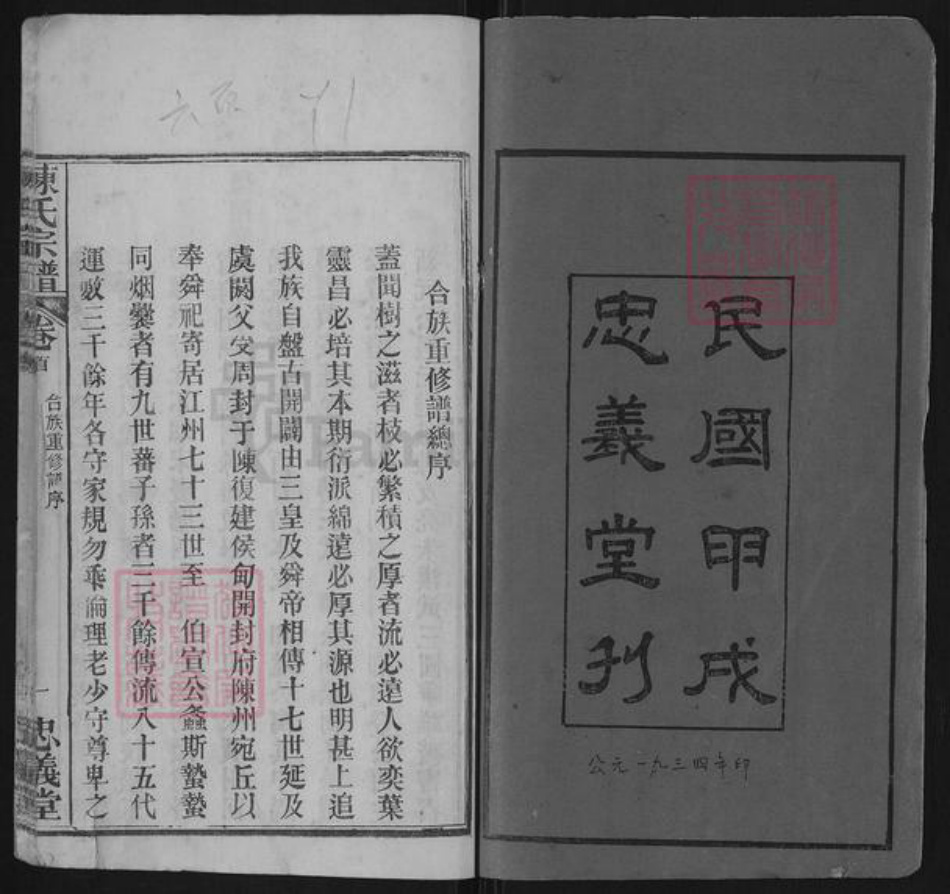 民國甲戌
忠義堂刊
公元一九三四年印
合族重修譜總序
蓋聞樹之滋者枝必繁積之厚者流必遠人欲奕葉
靈昌必培其本期衍派綿遠必厚其源也明甚上追
我族自盤古開闢由三皇及舜帝相傳十七世延及
虞閼父受周封于陳復建侯甸開封府陳州宛丘以
奉舜祀寄居江州七十三世至 伯宣公螽斯蟄蟄
同烟爨者有九世蕃子孫者三千餘傳流入十五代
運數三千餘年各守家規勿乖倫理老少守尊卑之
陳氏宗譜
卷首
合族重修譜序
一
忠義堂
六